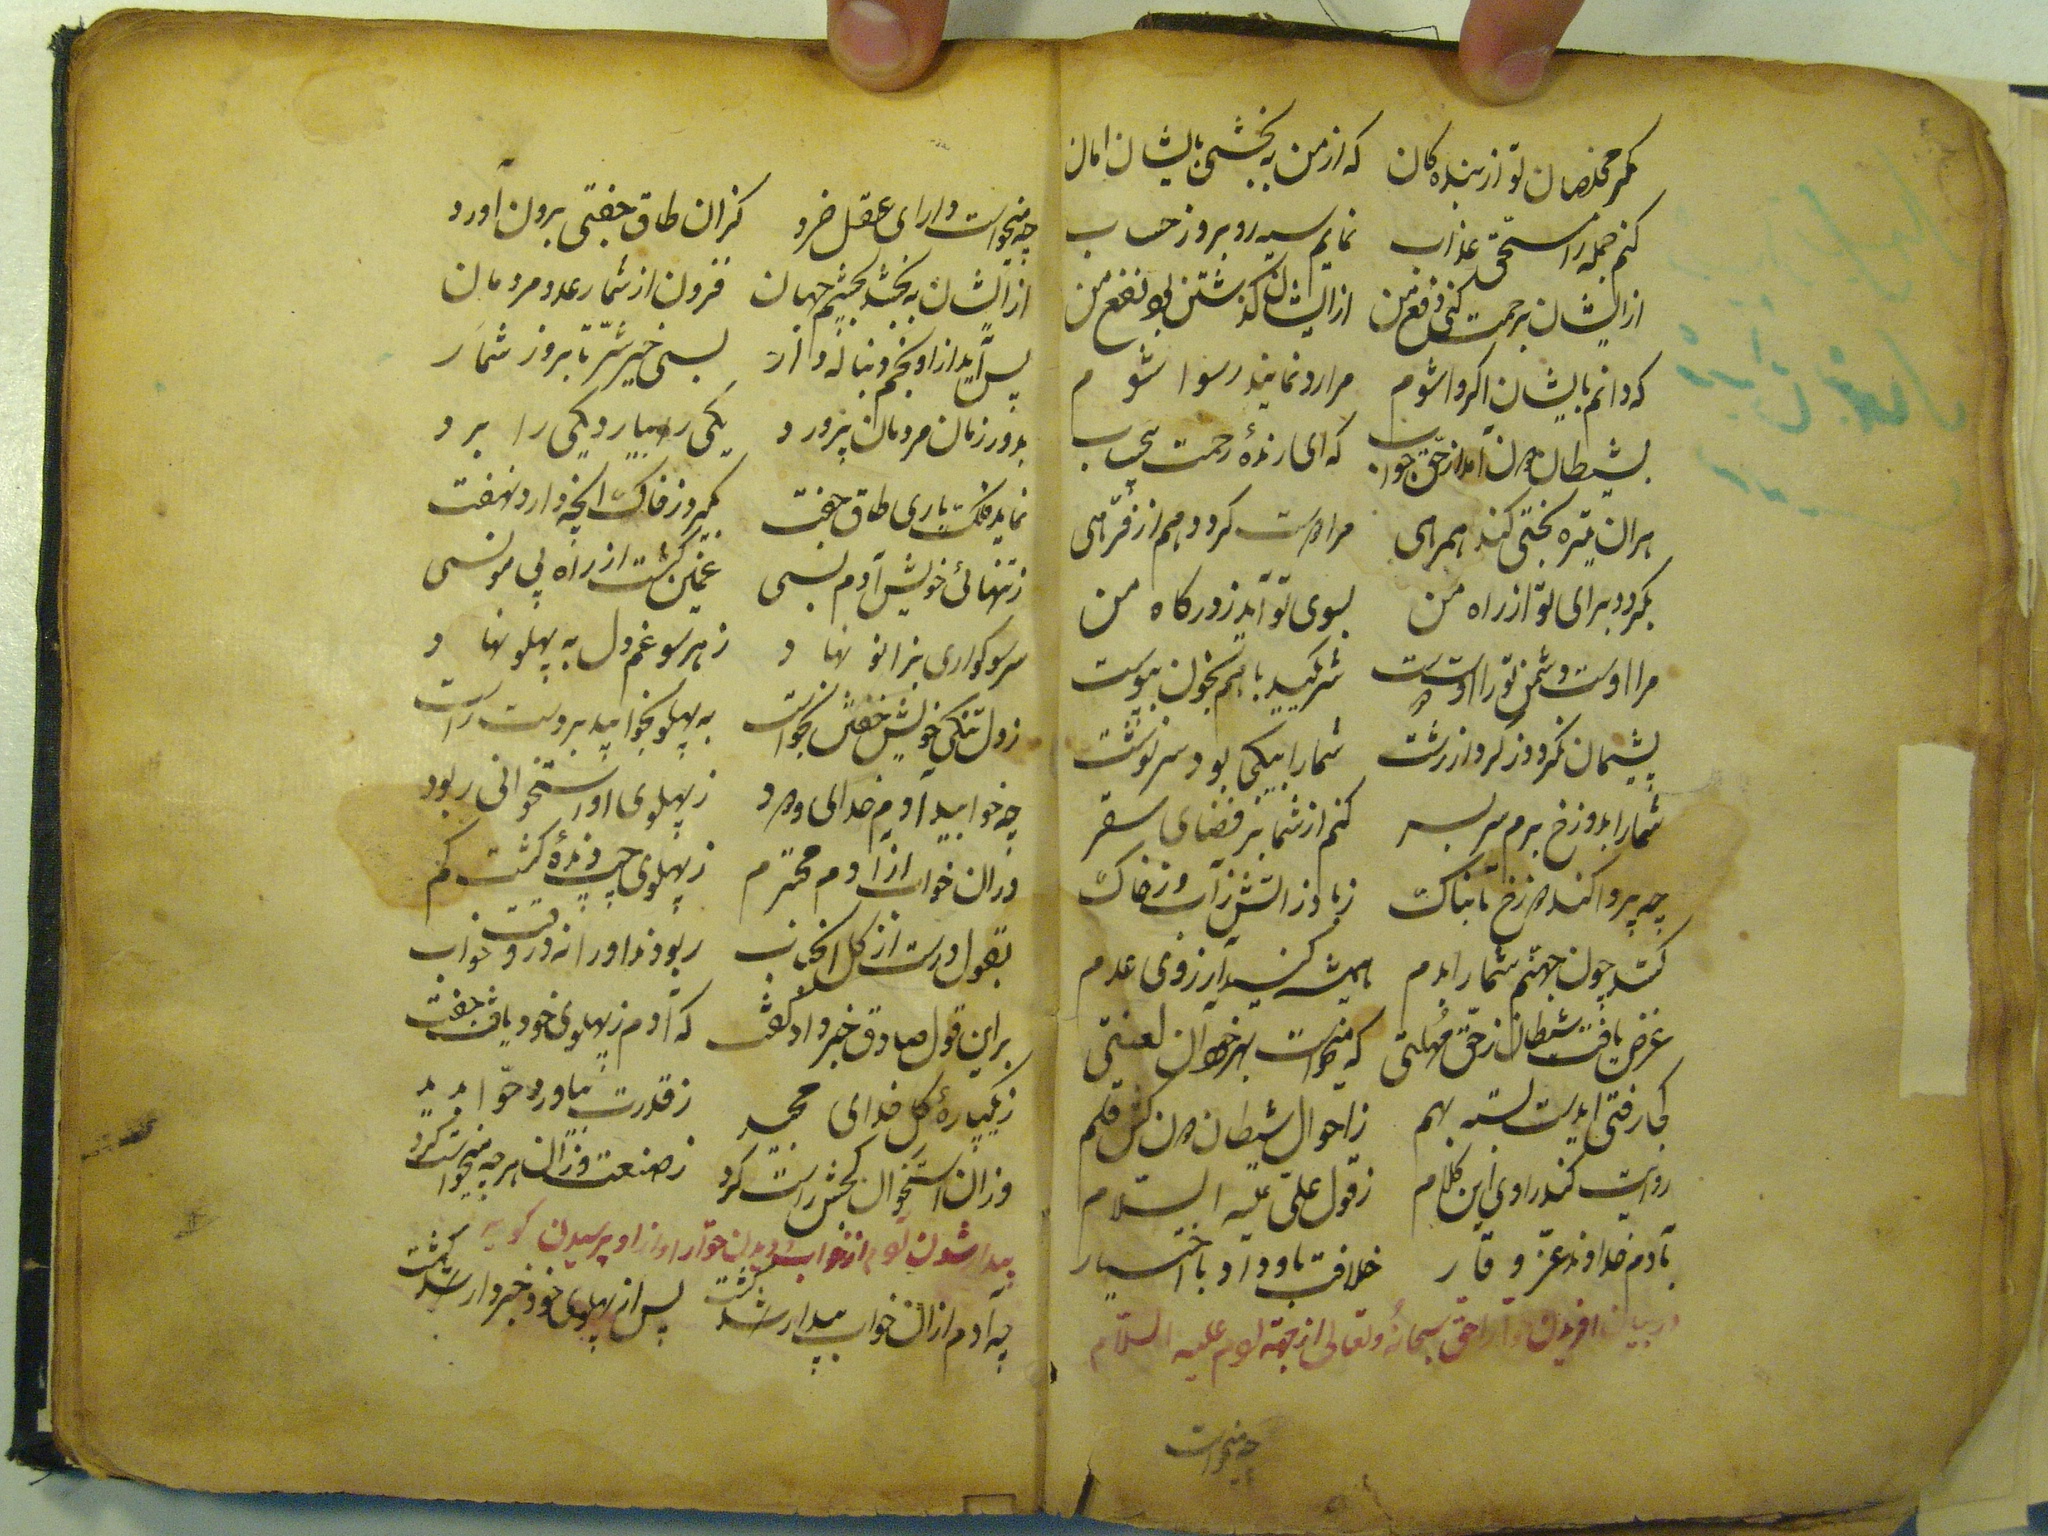 مگر مخلصان تو از بنده کان که از من به بخشی بایشان امان
کنم جمله را مستحق عذاب نمایم سیه رو بروز حساب
از ایشان برحمت کنی دفع من از ایشان گذشتن بود نفع من
که دانم بایشان اگر وا شوم مرا رو نمایند رسوا شوم
بشیطان دون آمد از حق جواب که ای رانده رحمت
هر آن تیره بختی کند همرهی مرا دوست گردد هم از فرهی
بگردد برای تو از راه من بسوی تو آید ز درگاه من
مرا اوست دشمن تو را اوست دوست شریکید با هم بخون بپوست
پشیمان نگردد ز کردار زشت شما را بیکی بود سرنوشت
شما را بدوزخ برم سر بسر کنم از شما پر فضای سقر
چه پروا کند دوزخ تابناک ز باد ز آتش ز آب و ز خاک
کشد چون جهنم شما را بدم همیشه کنید آرزوی عدم
غرض یافت شیطان ز حق مهلتی که میخواست بهر خود آن لعنتی
کجا رفتی ای دست بسته بهم ز احوال شیطان دون کش قلم
روایت کند راوی این کلام ز قول علی علیه السلام
بآدم خداوند عز و وقار خلافت باو داد با اختیار
در بیان آفریدن حوا را حق سبحانه وتعالی از جهة آدم علیه السلام
چه میخواست
چه میخواست دارای عقل خرد کزان طاق جفتی برون آورد
از ایشان به بخشد بچشم جهان فزون از شمار عدد مردمان
پس آید از او تخم دنباله دار بسی خیر شر تا بروز شمار
بدور زمان مردمان پرورد یکی را بیارد یکی را برد
نماید فلک باری طاق جفت بگیرد ز خاک آنچه دارد نهفت
ز تنهائی خویش آدم بسی غمین گشت از راه بی مونسی
سر سوگواری بزانو نهاد ز هر سو غم دل به پهلو نهاد
ز دل تنگی خویش خفتن بخواست به پهلو بخوابید بر دست راست
چه خوابید آدم خدای ودود ز پهلوی او استخوانی ربود
در آن خواب از آدم محترم ز پهلوی چپ دنده گشت کم
بقول درست از گل انتخاب ربودند او را نه در وقت خواب
بر این قول صادق خبر داد گفت که آدم ز پهلوی خود یافت جفت
ز یکپاره گل خدای مجید ز قدرت بیاورد حوا پدید
وز آن استخوان کجش راست کرد ز صنعت وز آن هر چه میخواست کرد
بیدار شدن آدم از خواب و دیدن حوا را و از او پرسیدن که
چه آدم از آن خواب بیدار گشت پس از پهلوی خود خبردار گشت